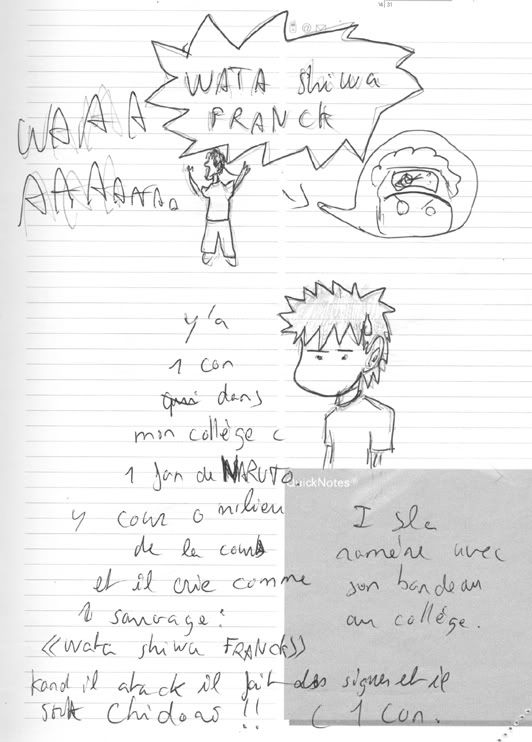 WATA shiwa
FRANCK
WAAAA
AAAAAAA
y'a
1 con
dans
mon collège c
1 fan de NARUTO.
y cour o milieu
de la cour
et il crie comme
1 sauvage :
«wata shiwa FRANCK»
kand il atack il fait des signes et il
Chidoai !! C 1 con.
QuickNotes
I sla
ramène avec
son bandeau
au collège.